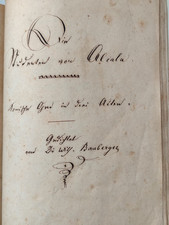 Die
Studenten von Alcala
Komische Oper in drei Akten.
Gedichtet
von Dr Wlf. Bamberger